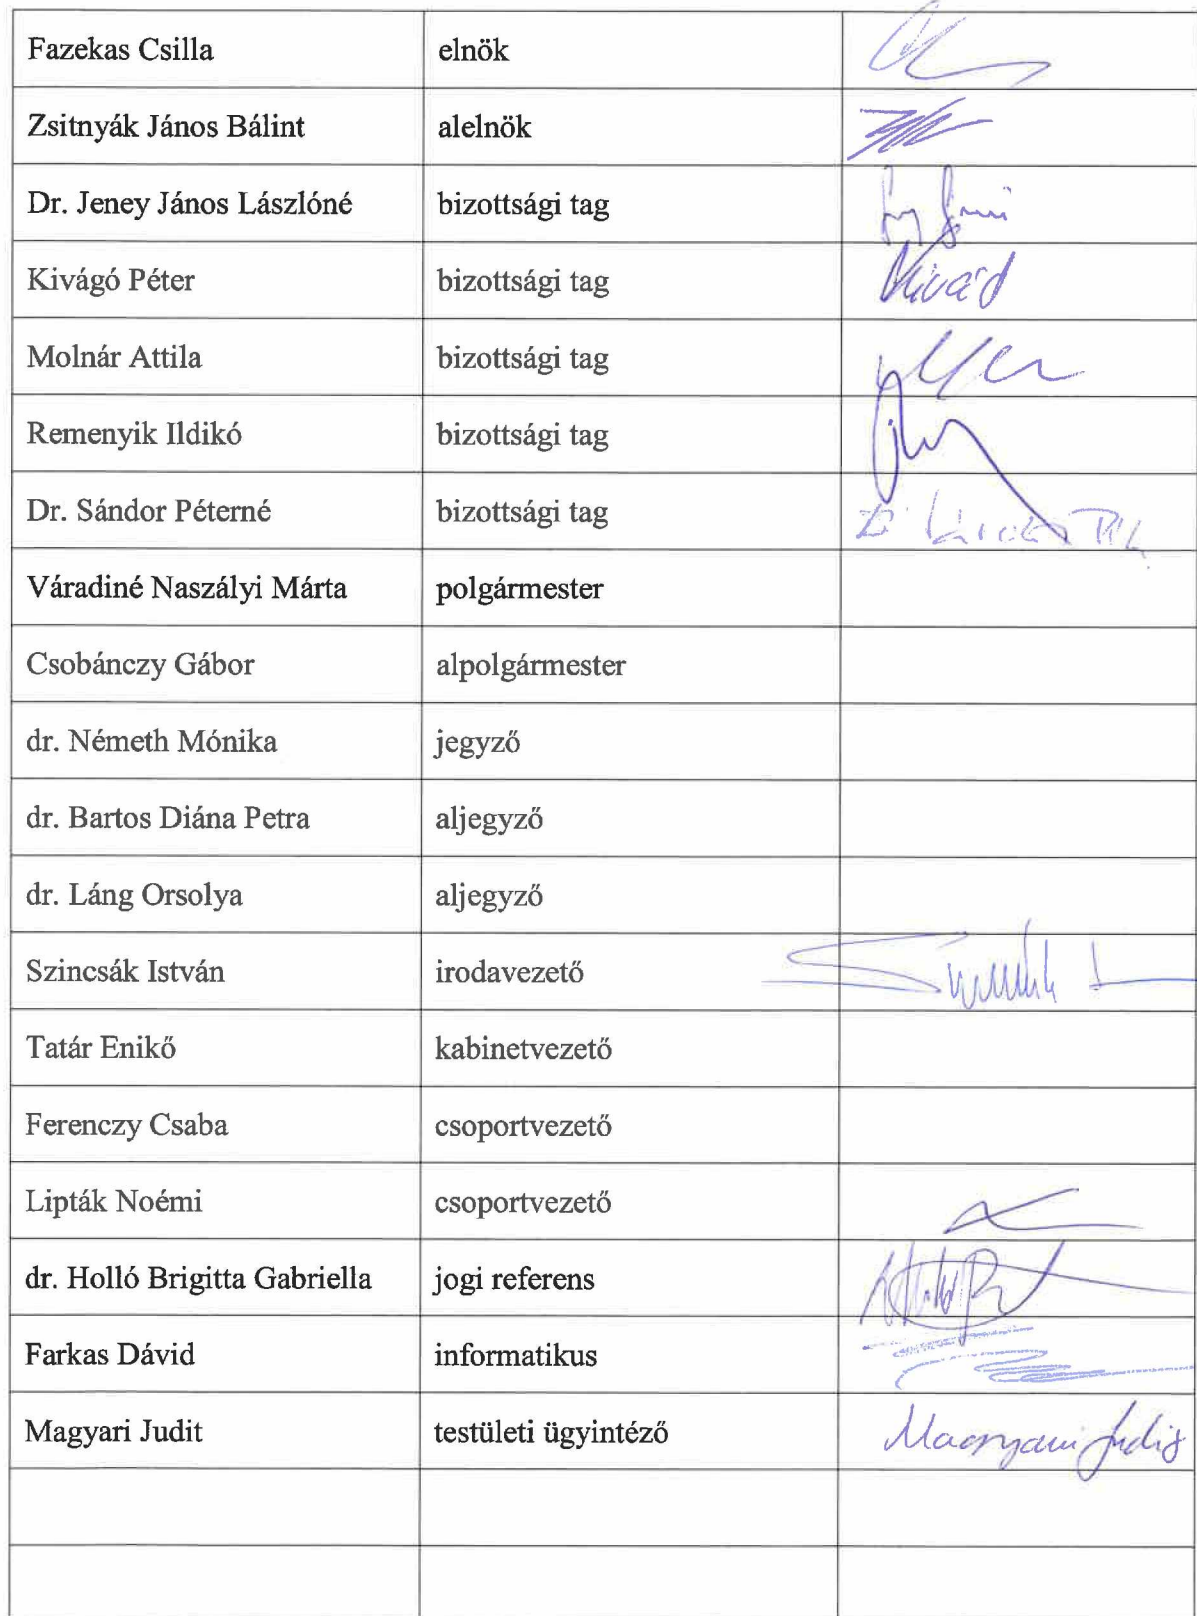 Fazekas Csilla elnök
Zsitnyák János Bálint alelnök
Dr. Jeney János Lászlóné bizottsági tag
Kivágó Péter bizottsági tag
Molnár Attila bizottsági tag
Remenyik Ildikó bizottsági tag
Dr. Sándor Péterné bizottsági tag
Váradiné Naszályi Márta polgármester
Csobánczy Gábor alpolgármester
dr. Németh Mónika jegyző
dr. Bartos Diána Petra aljegyző
dr. Láng Orsolya aljegyző
Szincsák István irodavezető
Tatár Enikő kabinetvezető
Ferenczy Csaba csoportvezető
Lipták Noémi csoportvezető
dr. Holló Brigitta Gabriella jogi referens
Farkas Dávid informatikus
Magyari Judit testületi ügyintéző Magyari Judit